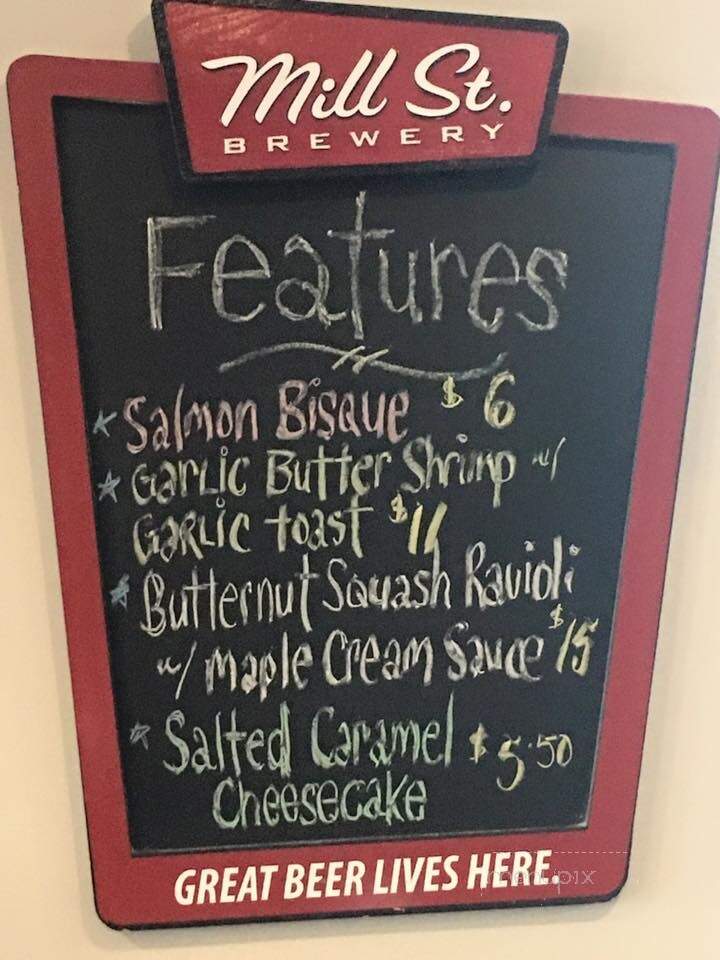 Mill St.
BREWERY
Features
Salmon Bisque $6
Garlic Butter Shrimp w/
Garlic toast $11
Butternut Squash Ravioli
w/ maple Cream Sauce $15
Salted Caramel $5.50
Cheesecake
GREAT BEER LIVES HERE
menupix